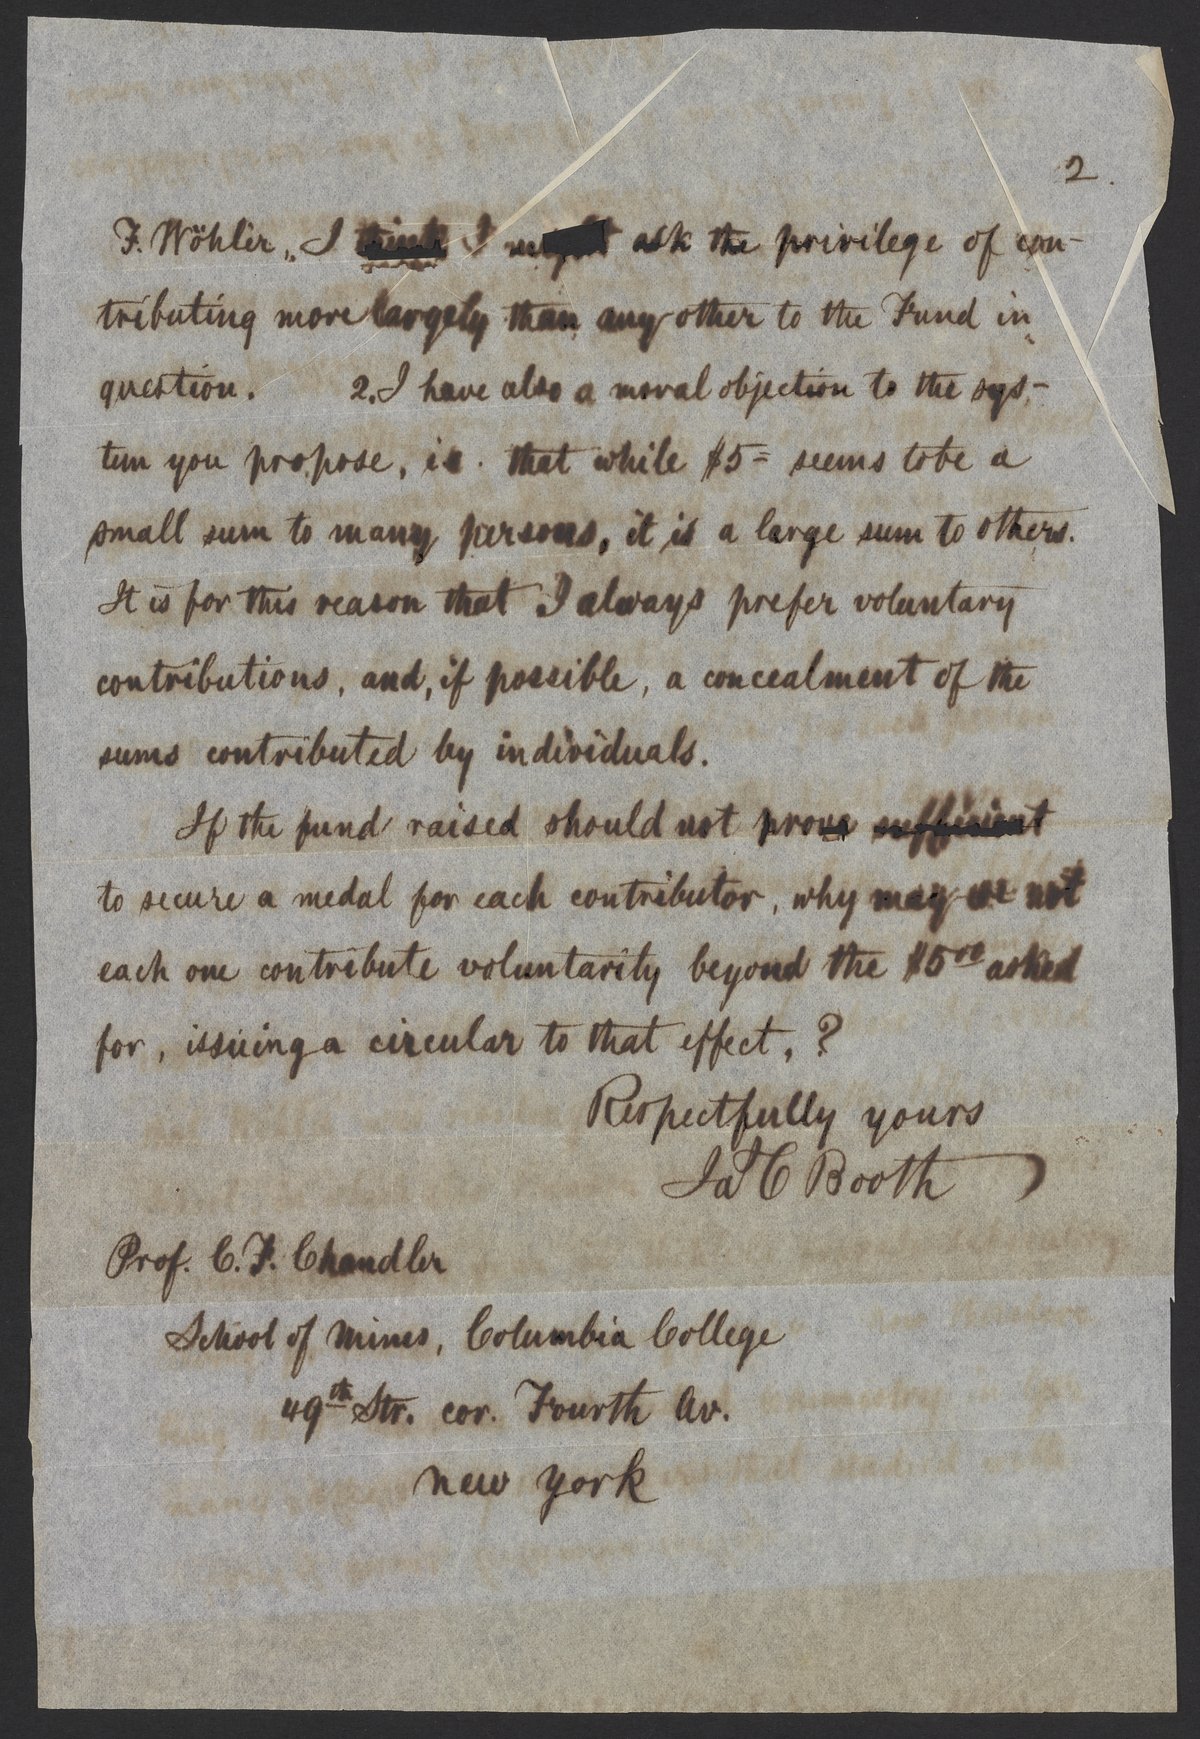 2.
F. Wöhler, I think I might ask the privilege of con-
tributing more largely than any other to the Fund in
question. 2. I have also a moral objection to the sys-
tem you propose, ie. that while $5= seems to be a
small sum to many persons, it is a large sum to others.
It is for this reason that I always prefer voluntary
contributions, and, if possible, a concealment of the
sums contributed by individuals.
If the fund raised should not prove sufficient
to secure a medal for each contributor, why may we not
each one contribute voluntarily beyond the $5.00 asked
for, issuing a circular to that effect, ?
Respectfully yours
Jas C Booth
Prof. C. F. Chandler
School of Mines, Columbia College
49th Str. cor. Fourth Av.
New York